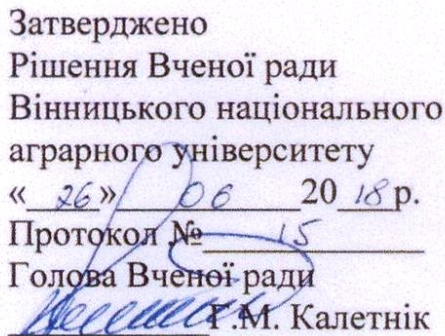 Затверджено
Рішення Вченої ради
Вінницького національного
аграрного університету
«26» 06 2018 р.
Протокол № 15
Голова Вченої ради
Г.М. Калетнік